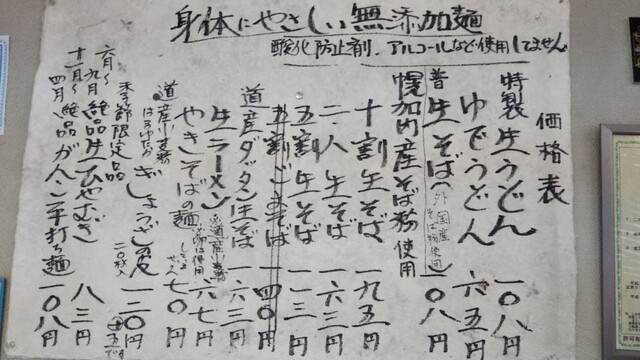 身体にやさしい無添加麺
酸化防止剤、アルコールなど使用してません。
価格表
特製生うどん 一〇八円
ゆでうどん 六五円
普生そば(外国産そば粉使用) 一〇八円
幌加内産そば粉使用
十割生そば 一九五円
二八生そば 一六三円
五割生そば 一一三円
五割ごまそば 一四〇円
道産ダッタン生そば 一六三円
生ラーメン 六七円
やきそばの麺 七〇円
道産小麦粉
はるゆたか
ぎょうざの皮 二〇枚入 一二〇円
季節限定品
六月〜九月 絶品生ひやむぎ 八三円
十一月〜四月 絶品がんこ手打ち麺 一〇八円